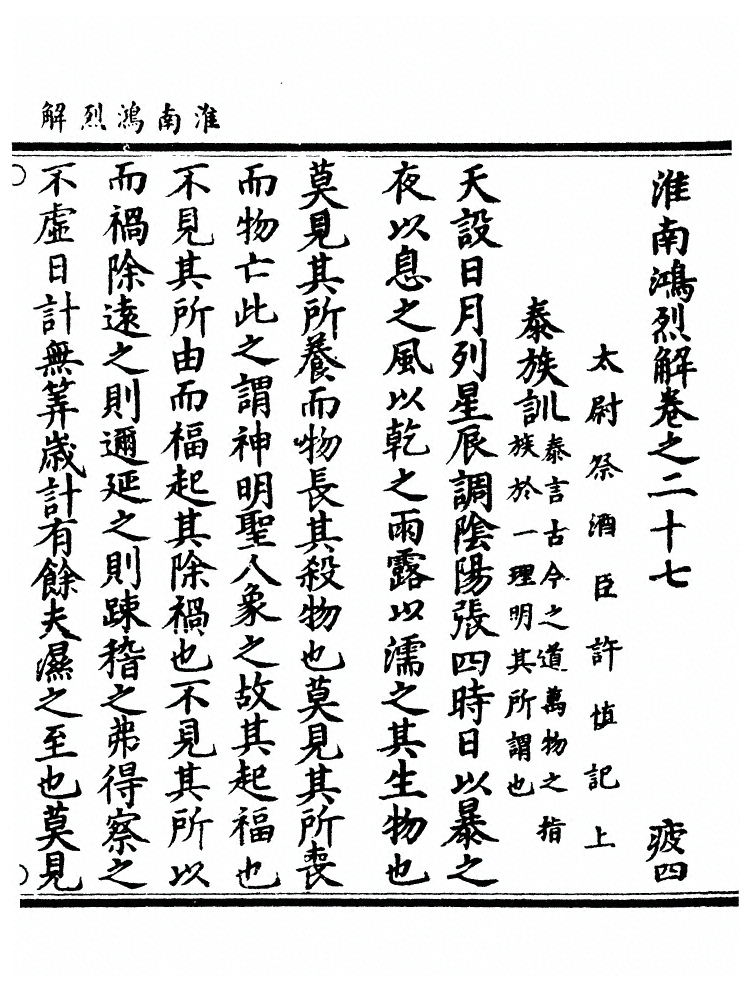 淮南鴻烈解
淮南鴻烈解卷之二十七
疲四
太尉祭酒臣許慎記上
泰族訓
泰言古今之道萬物之指
族於一理明其所謂也
天設日月列星辰調陰陽張四時日以暴之
夜以息之風以乾之雨露以濡之其生物也
莫見其所養而物長其殺物也莫見其所喪
而物亡此之謂神明聖人象之故其起福也
不見其所由而福起其除禍也不見其所以
而禍除遠之則邇延之則踈稽之弗得察之
不虛日計無筭歲計有餘夫濕之至也莫見